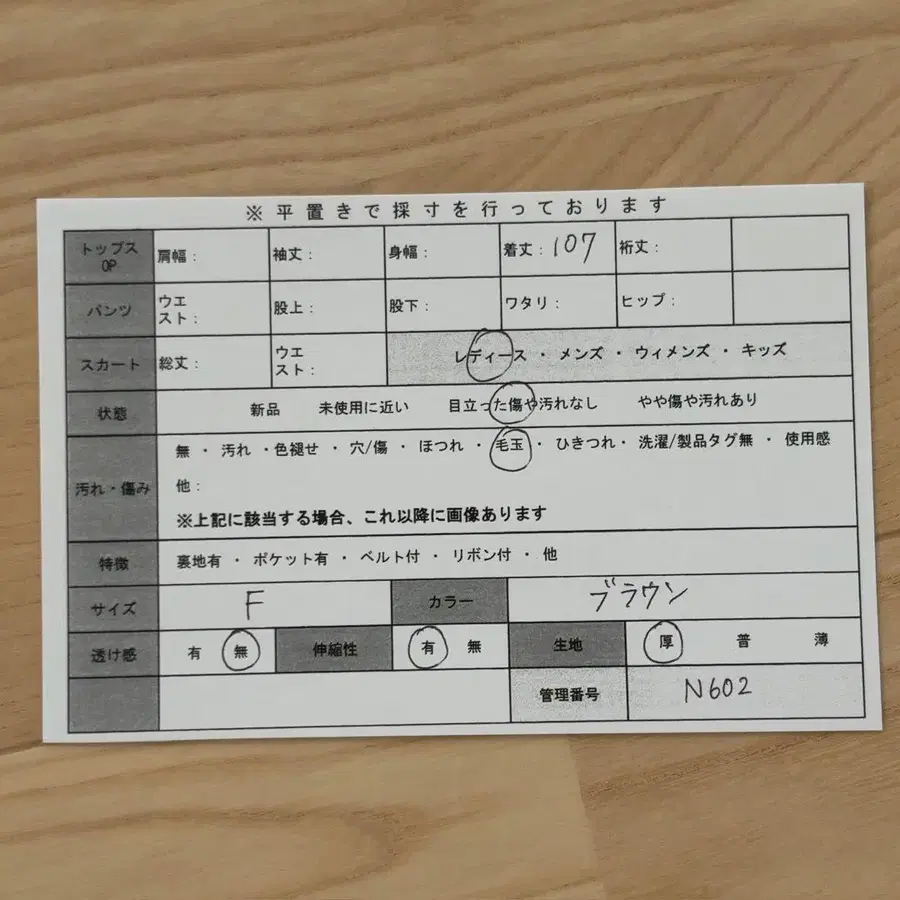 ※平置きで採寸を行っております
トップス OP 肩幅： 袖丈： 身幅： 着丈：107 裄丈：
パンツ ウエスト： 股上： 股下： ワタリ： ヒップ：
スカート 総丈： ウエスト： レディース ・ メンズ ・ ウィメンズ ・ キッズ
状態 新品 未使用に近い 目立った傷や汚れなし やや傷や汚れあり
汚れ・傷み 無 ・ 汚れ ・色褪せ ・ 穴/傷 ・ ほつれ ・ 毛玉 ・ ひきつれ・ 洗濯/製品タグ無 ・ 使用感
他：
※上記に該当する場合、これ以降に画像あります
特徴 裏地有 ・ ポケット有 ・ ベルト付 ・ リボン付 ・ 他
サイズ F カラー ブラウン
透け感 有 無 伸縮性 有 無 生地 厚 普 薄
管理番号 N602